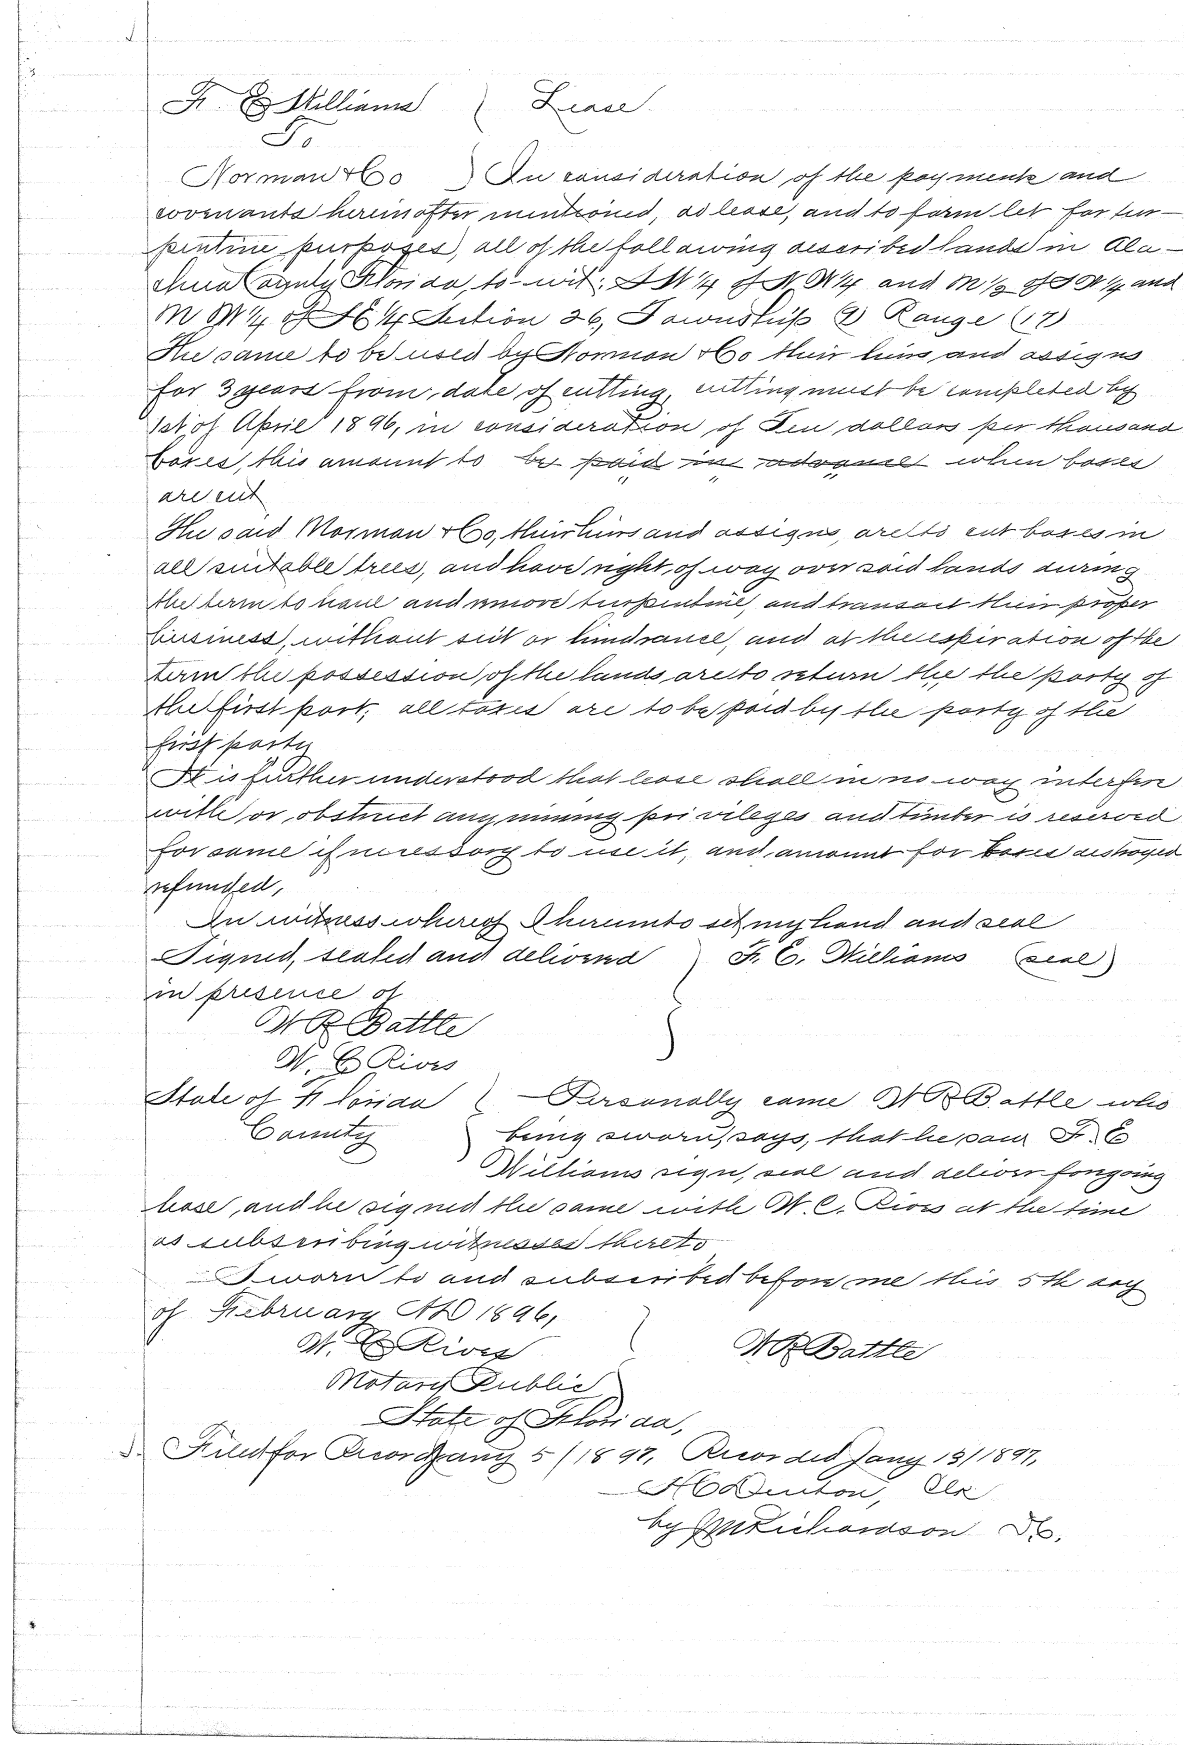 F. E. Williams } Lease
To
Norman & Co } In consideration of the payments and
covenants hereinafter mentioned, do lease, and to farm let for tur-
pentine purposes, all of the following described lands in Ala-
chua County Florida, to-wit; SW 1/4 of N.W 1/4 and N 1/2 of SW 1/4 and
N W 1/4 of SE 1/4 Section 26, Township (9) Range (17)
The same to be used by Norman & Co their heirs and assigns
for 3 years from date of cutting, cutting must be completed by
1st of April 1896, in consideration of Ten dollars per thousand
boxes, this amount to be paid in advance when boxes
are cut
The said Norman & Co, their heirs and assigns, are to cut boxes in
all suitable trees, and have right of way over said lands during
the term to haul and remove turpentine, and transact their proper
business, without suit or hindrance, and at the expiration of the
term the possession of the lands are to return the the party of
the first part; all taxes are to be paid by the party of the
first party
It is further understood that lease shall in no way interfere
with or obstruct any mining privileges and timber is reserved
for same if necessary to use it, and amount for boxes destroyed
refunded,
In witness whereof I hereunto set my hand and seal
Signed, sealed and delivered } F. E. Williams (seal)
in presence of
W R Battle
W. C Rives
State of Florida } Personally came W R Battle who
County } being sworn, says, that he saw F. E
Williams sign, seal and deliver foregoing
lease, and he signed the same with W. C. Rives at the time
as subscribing witnesses thereto
Sworn to and subscribed before me this 5th day
of February AD 1896,
W. C Rives } W R Battle
Notary Public
State of Florida,
Filed for Record Jany 5/1897, Recorded Jany 13/1897,
H C Denton, Clk
by J M Richardson D C.